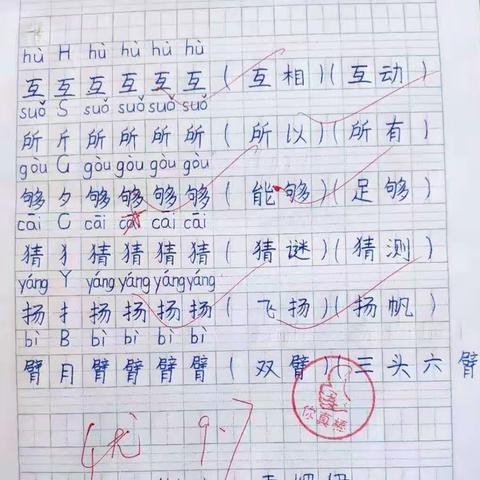 hù H hù hù hù hù
互 互 互 互 互 互 ( 互相 )( 互动 )
suǒ S suǒ suǒ suǒ suǒ
所 斤 所 所 所 所 ( 所以 )( 所有 )
gòu G gòu gòu gòu gòu
够 夕 够 够 够 够 ( 能够 )( 足够 )
cāi C cāi cāi cāi cāi
猜 犭 猜 猜 猜 猜 ( 猜谜 )( 猜测 )
yáng Y yáng yáng yáng yáng
扬 扌 扬 扬 扬 扬 ( 飞扬 )( 扬帆 )
bì B bì bì bì bì
臂 月 臂 臂 臂 臂 ( 双臂 )( 三头六臂
你真棒
优 9.7